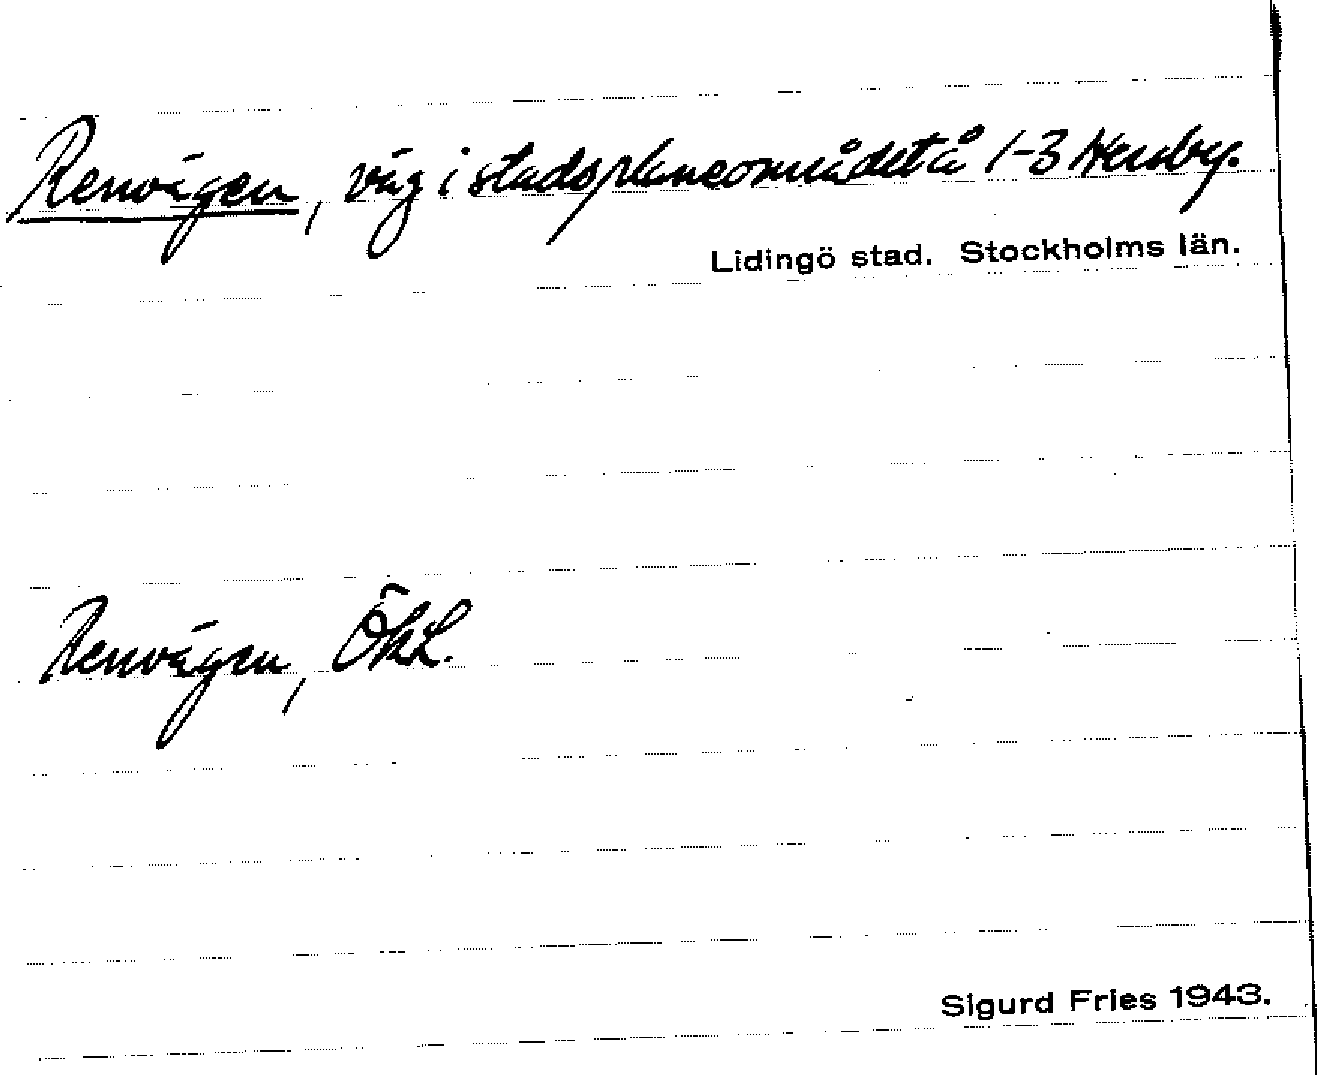 Renvägen, väg i stadsplaneområdet å 1-3 Hersby.
Lidingö stad. Stockholms län.
Renvägen, ÖkL.
Sigurd Fries 1943.